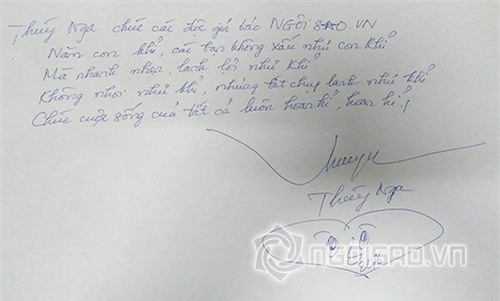 Thúy Nga chúc các độc giả báo NGÔI SAO.VN
Năm con khỉ, các bạn không xấu như con khỉ
Mà nhanh nhẹn, lanh lợi như khỉ
Không nhơi như khỉ, nhưng bất chụp lanh như khỉ
Chúc cuộc sống của tất cả luôn hoan hỉ, hoan hỉ!
Thúy Nga
NGOISAO.VN